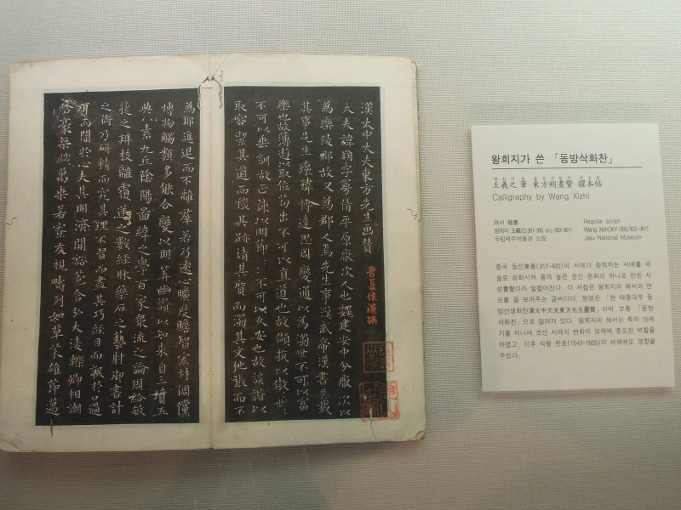 漢大中大夫東方先生畫贊
晉夏侯湛撰
大夫諱朔字曼倩平原厭次人也魏建安中分厭次以
為樂陵郡故又為郡人焉先生事漢武帝漢書具載
其事先生瓌瑋博達思周變通以為濁世不可以富
樂也故薄遊以取位苟出不可以直道也故頡抗以傲世
不可以垂訓故正諫以明節不可以久安也故詼諧以
取容潔其道而穢其跡清其質而濁其文弛張而不
為耶進退而不離羣若乃遠心曠度贍智宏材倜儻
博物觸類多能合變以明筭幽讚以知來自三墳五
典八素九丘陰陽圖緯之學百家衆流之論周給敏
捷之辯枝離覆逆之數經脉藥石之藝射御書計
之術乃研精而究其理不習而盡其巧經目而諷於口過
耳而闇於心夫其明濟開豁苞含弘大淩轢卿相嘲
豪桀萬乘若寮友視疇列如草芥雄節邁
왕희지가 쓴 「동방삭화찬」
王羲之筆 東方朔畫贊 搨本帖
Calligraphy by Wang Xizhi
해서 楷書 Regular script
왕희지 王羲之(307-365 또는 303-361) Wang Xizhi(307-365/303-361)
국립제주박물관 소장 Jeju National Museum
중국 동진東晉(317-420)의 서예가 왕희지는 서예를 예
술로 승화시켜 품격 높은 문인 문화의 하나로 만든 서
성書聖이라 일컬어진다. 이 서첩은 왕희지의 해서의 면
모를 잘 보여주는 글씨이다. 원명은 「한 태중대부 동
방선생화찬漢太中大夫東方先生畫贊」이며 보통 「동방
삭화찬」으로 알려져 있다. 왕희지의 해서는 특히 16세
기를 지나며 조선 서예의 변화와 모색에 중요한 역할을
하였고, 이후 석봉 한호(1543-1605)의 서체에도 영향을
주었다.